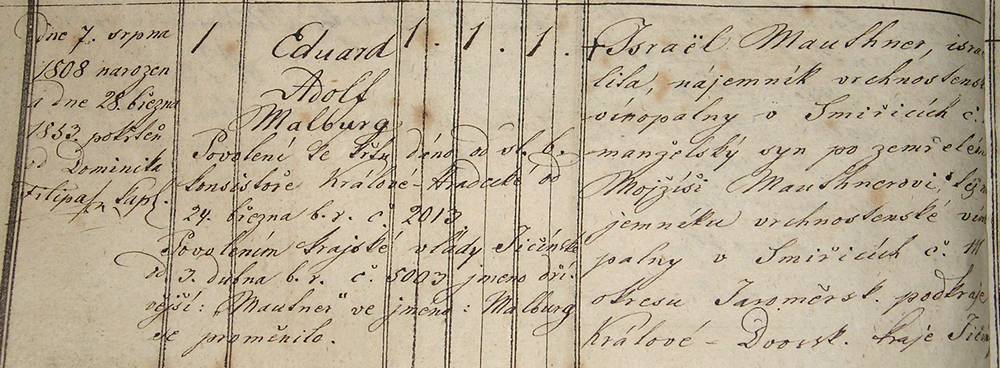 dne 7. srpna
1808 narozen
a dne 28. března
1853. pokřtěn
od Dominika
Filipa, Kapl.
1
Eduard
Adolf
Malburg
1. 1. 1.
Povolení ke křtu dáno od vel. b.
konsistoře Králové-Hradecké od
24. března b. r. č. 2013
Povolením krajské vlády Jičínské
od 3. dubna b. r. č. 5003 jmeno dří-
vější: „Mautner" ve jmeno: Malburg
se proměnilo.
† Israël Mauthner, isra-
lita, nájemník vrchnostensk
vinopalny v Smiřicích č.
manželský syn po zemřelém
Mojžíši Mauthnerovi,
jemníku vrchnostenské vino
palny v Smiřicích č. 111
okresu Jaroměřsk. podkraje
Králové-Dvorsk. kraje Jičín